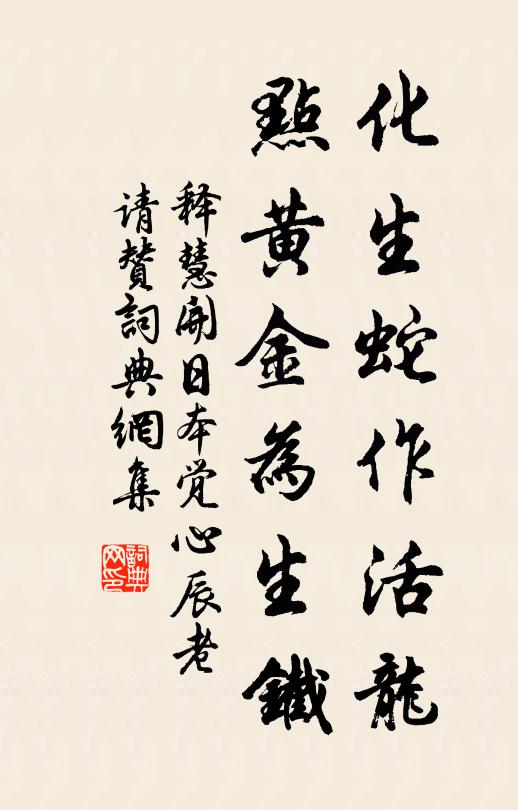 化生蛇作活龍
點黄金為生鐵
释慧開日本觉心辰老
请賛詞典網集
詞典網印